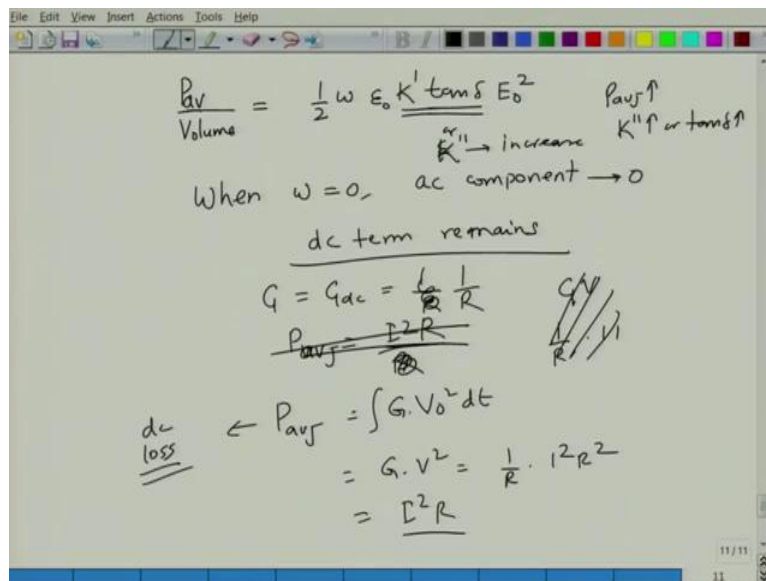 File Edit View Insert Actions Tools Help
B I
Pav / Volume = 1/2 ω ε₀ K' tanδ E₀² Pavg↑
or K'' → increase K''↑ or tanδ↑
When ω = 0, ac component → 0
dc term remains
G = Gdc = 1/R
Pavg = I²R
dc loss ← Pavg = ∫ G. V₀² dt
= G. V² = 1/R . I²R²
= I²R
11/11
11